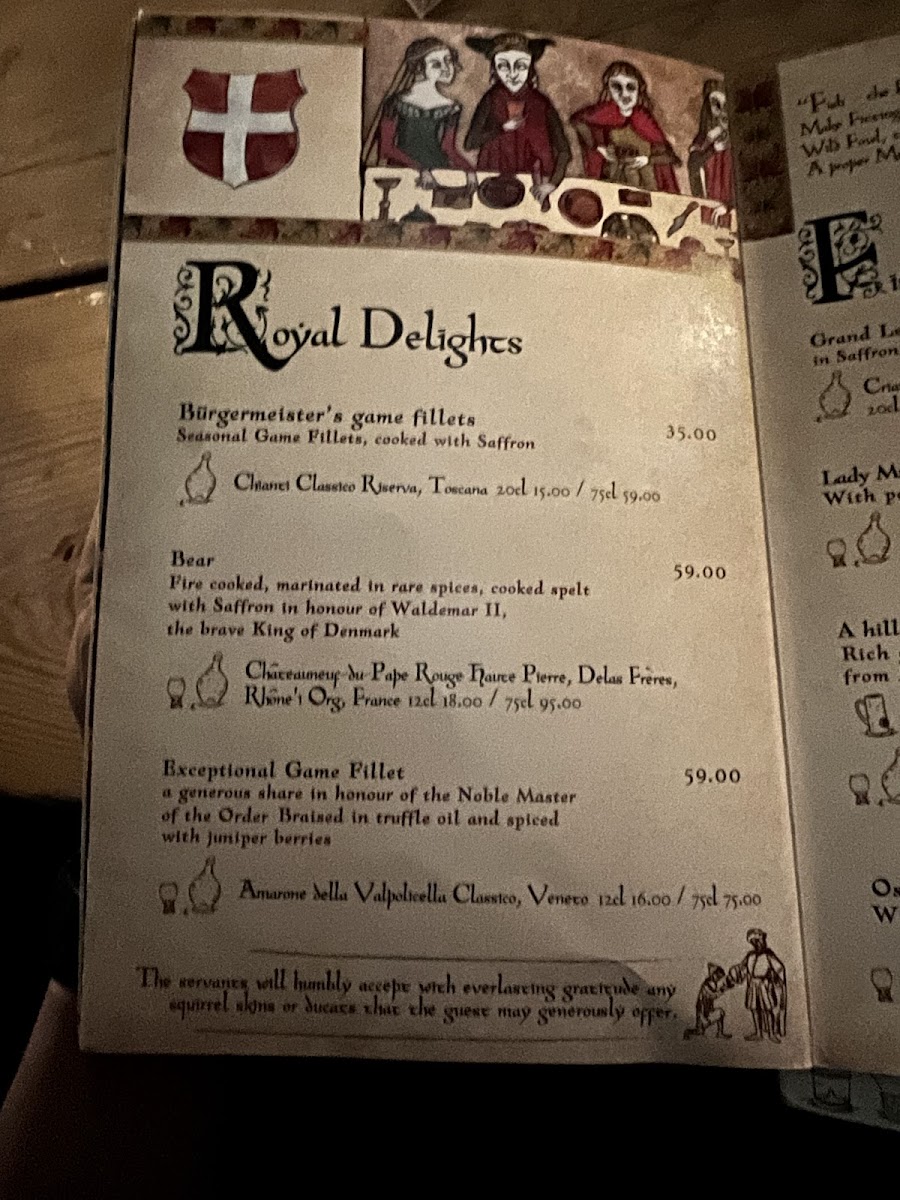 Royal Delights
Bürgermeister's game fillets
Seasonal Game Fillets, cooked with Saffron
35.00
Chianti Classico Riserva, Toscana 20cl 15.00 / 75cl 59.00
Bear
59.00
Fire cooked, marinated in rare spices, cooked spelt
with Saffron in honour of Waldemar II,
the brave King of Denmark
Châteauneuf-du-Pape Rouge Haute Pierre, Delas Frères,
Rhône'i Org, France 12cl 18.00 / 75cl 95.00
Exceptional Game Fillet
59.00
a generous share in honour of the Noble Master
of the Order Braised in truffle oil and spiced
with juniper berries
Amarone della Valpolicella Classico, Veneto 12cl 16.00 / 75cl 75.00
The servants will humbly accept with everlasting gratitude any
squirrel skins or ducats that the guest may generously offer.
Make
A proper
Grand
in Saffron
20cl
Lady
With
A hill
Rich
from